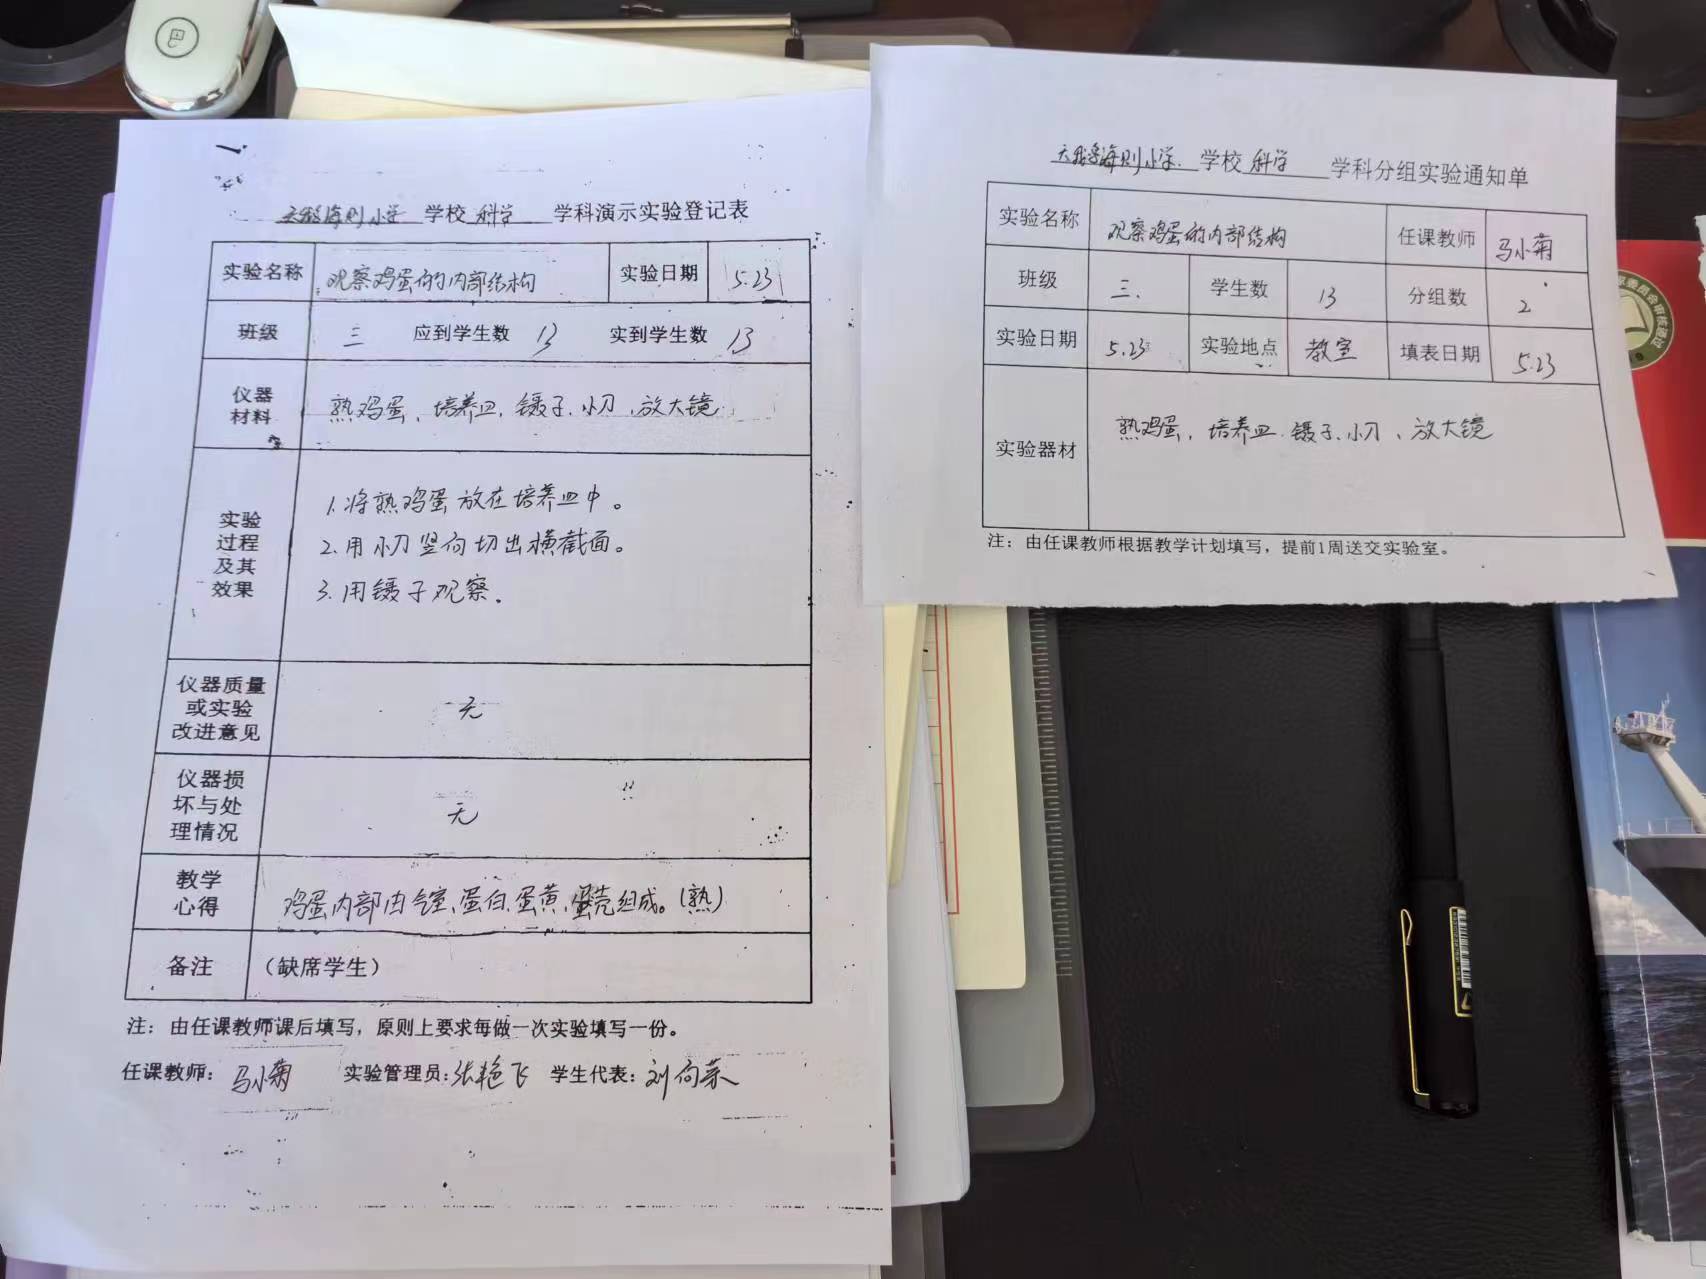 海则小学 学校 科学 学科演示实验登记表
实验名称 观察鸡蛋的内部结构 实验日期 5.23
班级 三 应到学生数 13 实到学生数 13
仪器
材料
熟鸡蛋、培养皿、镊子、小刀、放大镜
实验
过程
及其
效果
1.将熟鸡蛋放在培养皿中。
2.用小刀竖向切出横截面。
3.用镊子观察。
仪器质量
或实验
改进意见
无
仪器损
坏与处
理情况
无
教学
心得
鸡蛋内部由气室、蛋白、蛋黄、蛋壳组成。(熟)
备注 （缺席学生）
注：由任课教师课后填写，原则上要求每做一次实验填写一份。
任课教师：马小菊 实验管理员：张艳飞 学生代表：刘向荣
海则小学 学校 科学 学科分组实验通知单
实验名称 观察鸡蛋的内部结构 任课教师 马小菊
班级 三. 学生数 13 分组数 2
实验日期 5.23 实验地点 教室 填表日期 5.23
实验器材 熟鸡蛋、培养皿、镊子、小刀、放大镜
注：由任课教师根据教学计划填写，提前1周送交实验室。